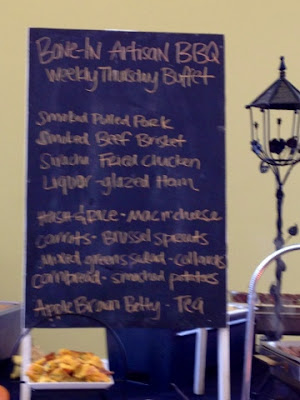 Bone-In Artisan BBQ
Weekly Thursday Buffet
Smoked Pulled Pork
Smoked Beef Brisket
Sriracha Fried Chicken
Liquor-glazed Ham
Hash & rice - Mac n cheese
Carrots - Brussel sprouts
Mixed greens salad - collards
Cornbread - smashed potatoes
Apple Brown Betty - Tea